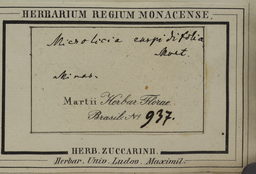 HERBARIUM REGIUM MONACENSE.
Microlicia cuspidifolia
Mart.
Minas.
Martii Herbar. Florae
Brasil. No 937.
HERB. ZUCCARINII.
Herbar. Univ. Ludov. Maximil.